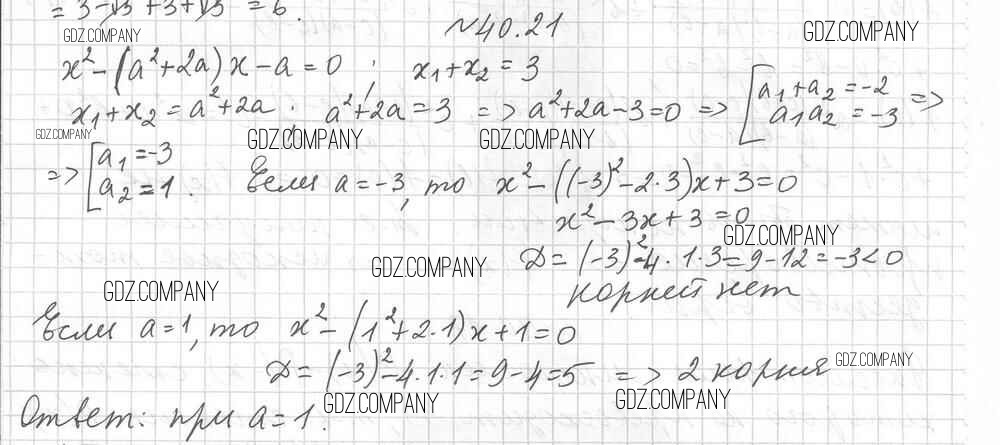 = 3-√3 + 3 + √3 = 6.
№40.21
GDZ.COMPANY
GDZ.COMPANY
x² - (a² + 2a)x - a = 0 ; x₁ + x₂ = 3
x₁ + x₂ = a² + 2a . a² + 2a = 3 => a² + 2a - 3 = 0 => [ a₁ + a₂ = -2
a₁a₂ = -3 =>
GDZ.COMPANY
GDZ.COMPANY
GDZ.COMPANY
=> [ a₁ = -3
a₂ = 1 . Если a = -3, то x² - ((-3)² - 2·3)x + 3 = 0
x² - 3x + 3 = 0
GDZ.COMPANY
Д = (-3)² - 4·1·3 = 9 - 12 = -3 < 0
GDZ.COMPANY
корней нет
GDZ.COMPANY
Если a = 1, то x² - (1² + 2·1)x + 1 = 0
GDZ.COMPANY
Д = (-3)² - 4·1·1 = 9 - 4 = 5 => 2 корня
GDZ.COMPANY
GDZ.COMPANY
Ответ: при a = 1.